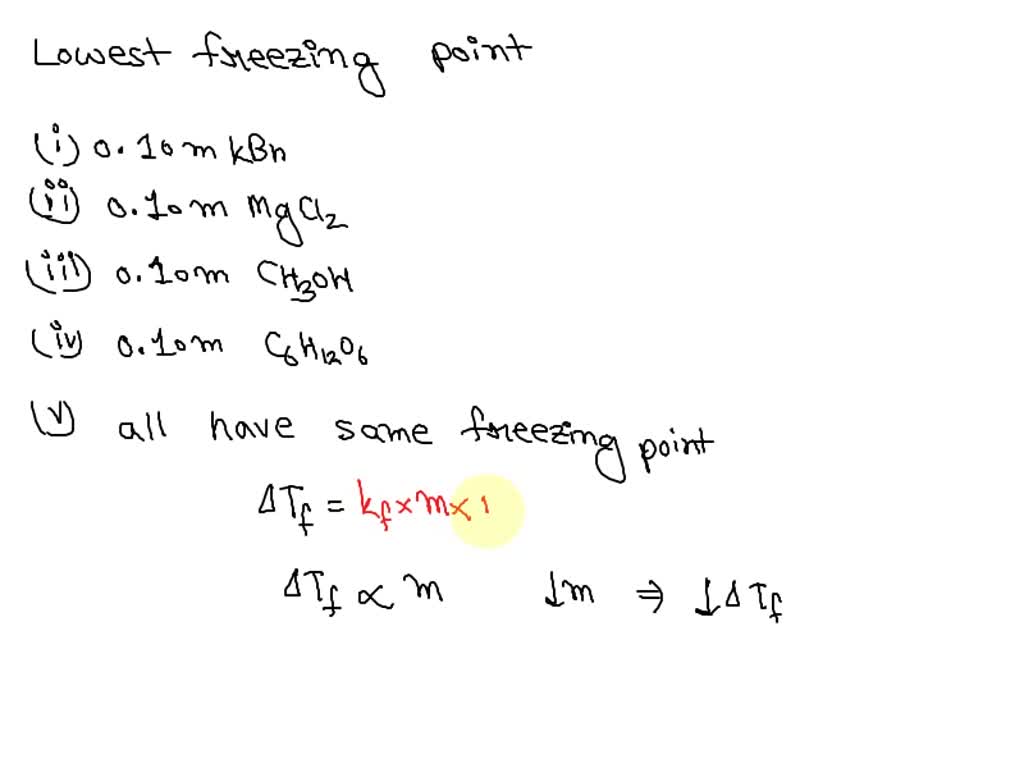 Lowest freezing point
(i) 0.10m KBr
(ii) 0.10m MgCl₂
(iii) 0.10m CH₃OH
(iv) 0.10m C₆H₁₂O₆
(v) all have same freezing point
ΔT_f = k_f × m × 1
ΔT_f ∝ m ↓m ⇒ ↓ΔT_f